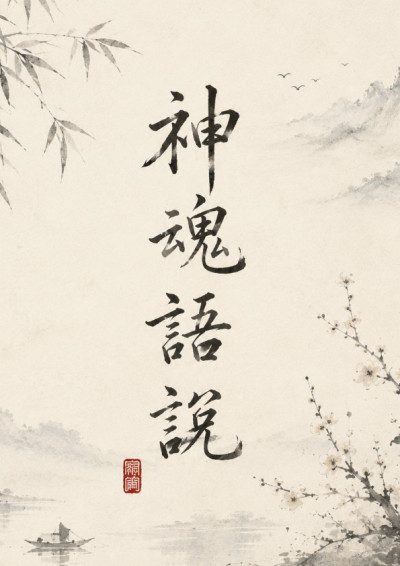 神魂語說